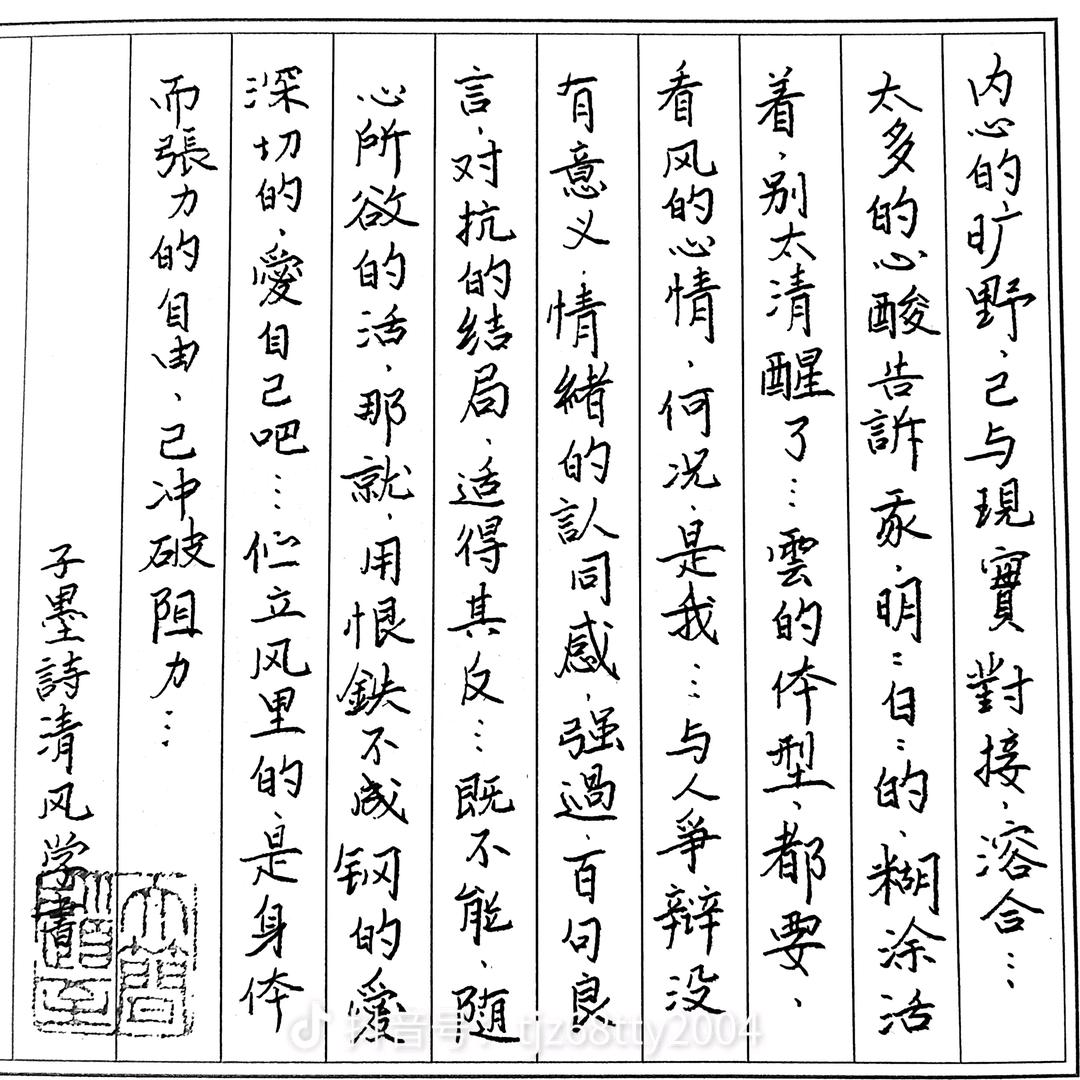 内心的旷野、己与現實對接、溶合…
太多的心酸告訴我、明:白:的、糊涂活
着、别太清醒了…雲的体型、都要、
看风的心情、何况、是我…与人爭辯没
有意义、情緒的認同感、强過、百句良
言、对抗的结局、适得其反…既不能、随
心所欲的活、那就、用恨鉄不成钢的愛
深切的、愛自己吧…伫立风里的、是身体
而張力的自由、己冲破阻力…
子墨詩清风学書
抖音号：tjz68tty2004